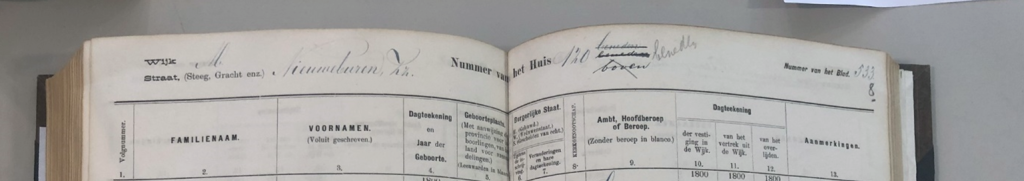 Wijk M
Straat, (Steeg, Gracht enz.) Nieuweburen, Zz. Nummer van het Huis 120 beneden boven beneden Nummer van het Blad. 533
8
Volgnummer. 1.
FAMILIENAAM. 2.
VOORNAMEN. (Voluit geschreven.) 3.
Dagteekening en Jaar der Geboorte. 4.
Geboorteplaats
(Met aanwijzing
provincie voor
hoorlingen, van
land voor
delingen.)
(Leeuwarden is blanco 5.
Burgerlijke Staat.
Veranderingen en hare dagteekening. 7.
KERKGENOOTSCHAP. 8.
Ambt, Hoofdberoep of Beroep. (Zonder beroep in blanco.) 9.
Dagteekening
der vestiging in de Wijk. 10.
van het vertrek uit de Wijk. 11.
van het overlijden. 12.
Aanmerkingen. 13.
1800 1800 1800